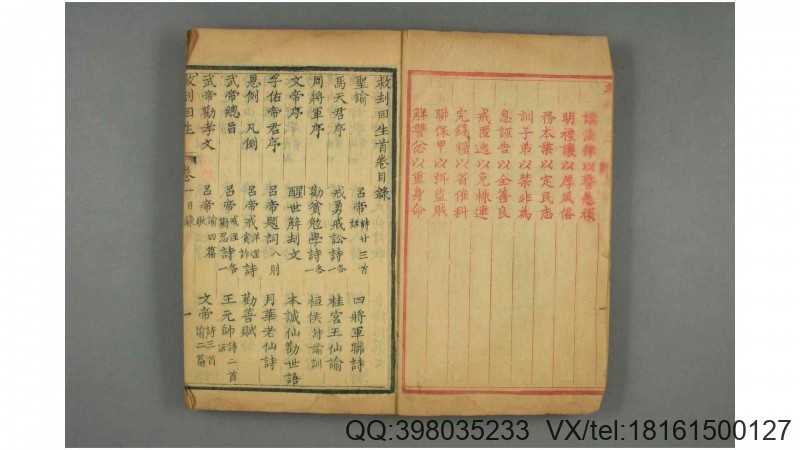 講法律以警愚頑
明禮讓以厚風俗
務本業以定民志
訓子弟以禁非為
息誣告以全善良
戒匿逃以免株連
完錢糧以省催科
聯保甲以弭盜賊
解讐忿以重身命
救刦回生首卷目錄
聖諭 呂帝詩廿三首 四將軍聯詩
馬天君序 戒勇戒訟詩各一 桂宮王仙諭
周將軍序 勸貧勉學詩各一 桓侯詩諭訓
文帝序 醒世解刦文 本誠仙勸世語
孚佑帝君序 呂帝題詞八則 月華老仙詩
恩例 凡例 呂帝戒詩各一 勸善賦
武帝總旨 呂帝戒淫詩各一 王元帥詩二首
武帝勸孝文 呂帝諭四篇 文帝詩三首諭二篇
救刦回生 卷一目錄 一
QQ:398035233 VX/tel:18161500127